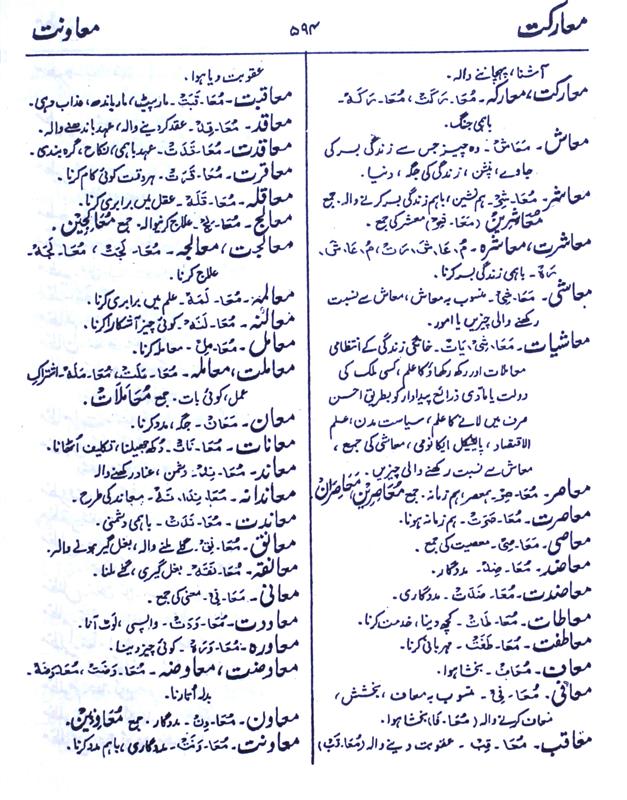 معارکت
۵۹۴
معاونت
آشنا، پہچاننے والہ۔
معارکت، معارکہ۔ مُعَا۔رَکَتْ، مُعَا۔رَکَہْ۔
باہمی جنگ۔
معاش۔ مَعَاشْ۔ وہ چیز جس سے زندگی بسر کی
جاوے، پنشن، زندگی کی جگہ، دنیا۔
معاشر۔ مُعَا۔شِرْ۔ ہم نشین، باہم زندگی بسر کرنے والہ۔ جمع
مُعَاشِرِیْنْ (مَعَا۔شِرْ) معشر کی جمع۔
معاشرت، معاشرہ۔ مُ۔عَا۔شَ۔رَتْ، مُ۔عَا۔شَ۔
رَہْ۔ باہمی زندگی بسر کرنا۔
معاشی۔ مَعَا۔شِیْ۔ منسوب بہ معاش، معاش سے نسبت
رکھنے والی چیزیں یا امور۔
معاشیات۔ مَعَا۔شِیْ۔یَاتْ۔ خانگی زندگی کے انتظامی
معاملات اور رکھ رکھاؤ کا علم، کسی ملک کی
دولت یا مادی ذرائع پیداوار کو بطریق احسن
صرف میں لانے کا علم، سیاست مدن، علم
الاقتصاد، پالیٹیکل ایکانومی، معاشی کی جمع،
معاش سے نسبت رکھنے والی چیزیں۔
معاصر۔ مُعَا۔صِرْ۔ ہمعصر، ہم زمانہ۔ جمع مُعَاصِرِیْنْ، مُعَاصِرَانْ۔
معاصرت۔ مُعَا۔صَرَتْ۔ ہم زمانہ ہونا۔
معاصی۔ مَعَا۔صِیْ۔ معصیت کی جمع۔
معاضد۔ مُعَا۔ضِدْ۔ مددگار۔
معاضدت۔ مُعَا۔ضَدَتْ۔ مددگاری۔
معاطات۔ مُعَا۔طَاتْ۔ کچھ دینا، خدمت کرنا۔
معاطفت۔ مُعَا۔طَفَتْ۔ مہربانی کرنا۔
معاف۔ مُعَافْ۔ بخشا ہوا۔
معافی۔ مُعَا۔فِیْ۔ منسوب بہ معاف، بخشش،
معاف کرنے والہ (مُعَا۔فَا) بخشا ہوا۔
معاقب۔ مُعَا۔قِبْ۔ عقوبت دینے والہ (مُعَا۔قَبْ)
عقوبت دیا ہوا۔
معاقبت۔ مُعَا۔قَبَتْ۔ مارپیٹ، مار باندھ، عذاب دہی۔
معاقد۔ مُعَا۔قِدْ۔ عقد کر دینے والہ، عہد باندھنے والہ۔
معاقدت۔ مُعَا۔قَدَتْ۔ عہد باہمی، نکاح، گرہ بندی۔
معاقرت۔ مُعَا۔قَرَتْ۔ ہر وقت کوئی کام کرنا۔
معاقلہ۔ مُعَا۔قَلَہْ۔ عقل میں برابری کرنا۔
معالج۔ مُعَا۔لِجْ۔ علاج کرنیوالہ۔ جمع مُعَالِجِیْنْ۔
معالجت، معالجہ۔ مُعَا۔لَجَتْ، مُعَا۔لَجَہْ۔
علاج کرنا۔
معالمہ۔ مُعَا۔لَمَہْ۔ علم میں برابری کرنا۔
معالنہ۔ مُعَا۔لَنَہْ۔ کوئی چیز آشکارا کرنا۔
معامل۔ مُعَا۔مِلْ۔ معاملہ کرنا۔
معاملت، معاملہ۔ مُعَا۔مَلَتْ، مُعَا۔مَلَہْ۔ اشتراکِ
عمل، کوئی بات۔ جمع مُعَامَلَاتْ۔
معان۔ مَعَانْ۔ جگہ، مدد کرنا۔
معانات۔ مُعَا۔نَاتْ۔ دکھ جھیلنا، تکلیف اٹھانا۔
معاند۔ مُعَا۔نِدْ۔ دشمن، عناد رکھنے والہ
معاندانہ۔ مُعَا۔نِدَا۔نَہْ۔ معاند کی طرح۔
معاندت۔ مُعَا۔نَدَتْ۔ باہمی دشمنی۔
معانق۔ مُعَا۔نِقْ۔ گلے ملنے والہ، بغل گیر ہونے والہ۔
معانقہ۔ مُعَا۔نَقَہْ۔ بغل گیری، گلے ملنا۔
معانی۔ مَعَا۔نِیْ۔ معنی کی جمع۔
معاودت۔ مُعَا۔وَدَتْ۔ واپسی، لوٹ آنا۔
معاورہ۔ مُعَا۔وَرَہْ۔ کوئی چیز دینا۔
معاوضت، معاوضہ۔ مُعَا۔وَضَتْ، مُعَا۔وَضَہْ۔
بدلہ اُتارنا۔
معاون۔ مُعَا۔وِنْ۔ مددگار۔ جمع مُعَاوِنِیْنْ۔
معاونت۔ مُعَا۔وَنَتْ۔ مددگاری، باہم مدد کرنا۔